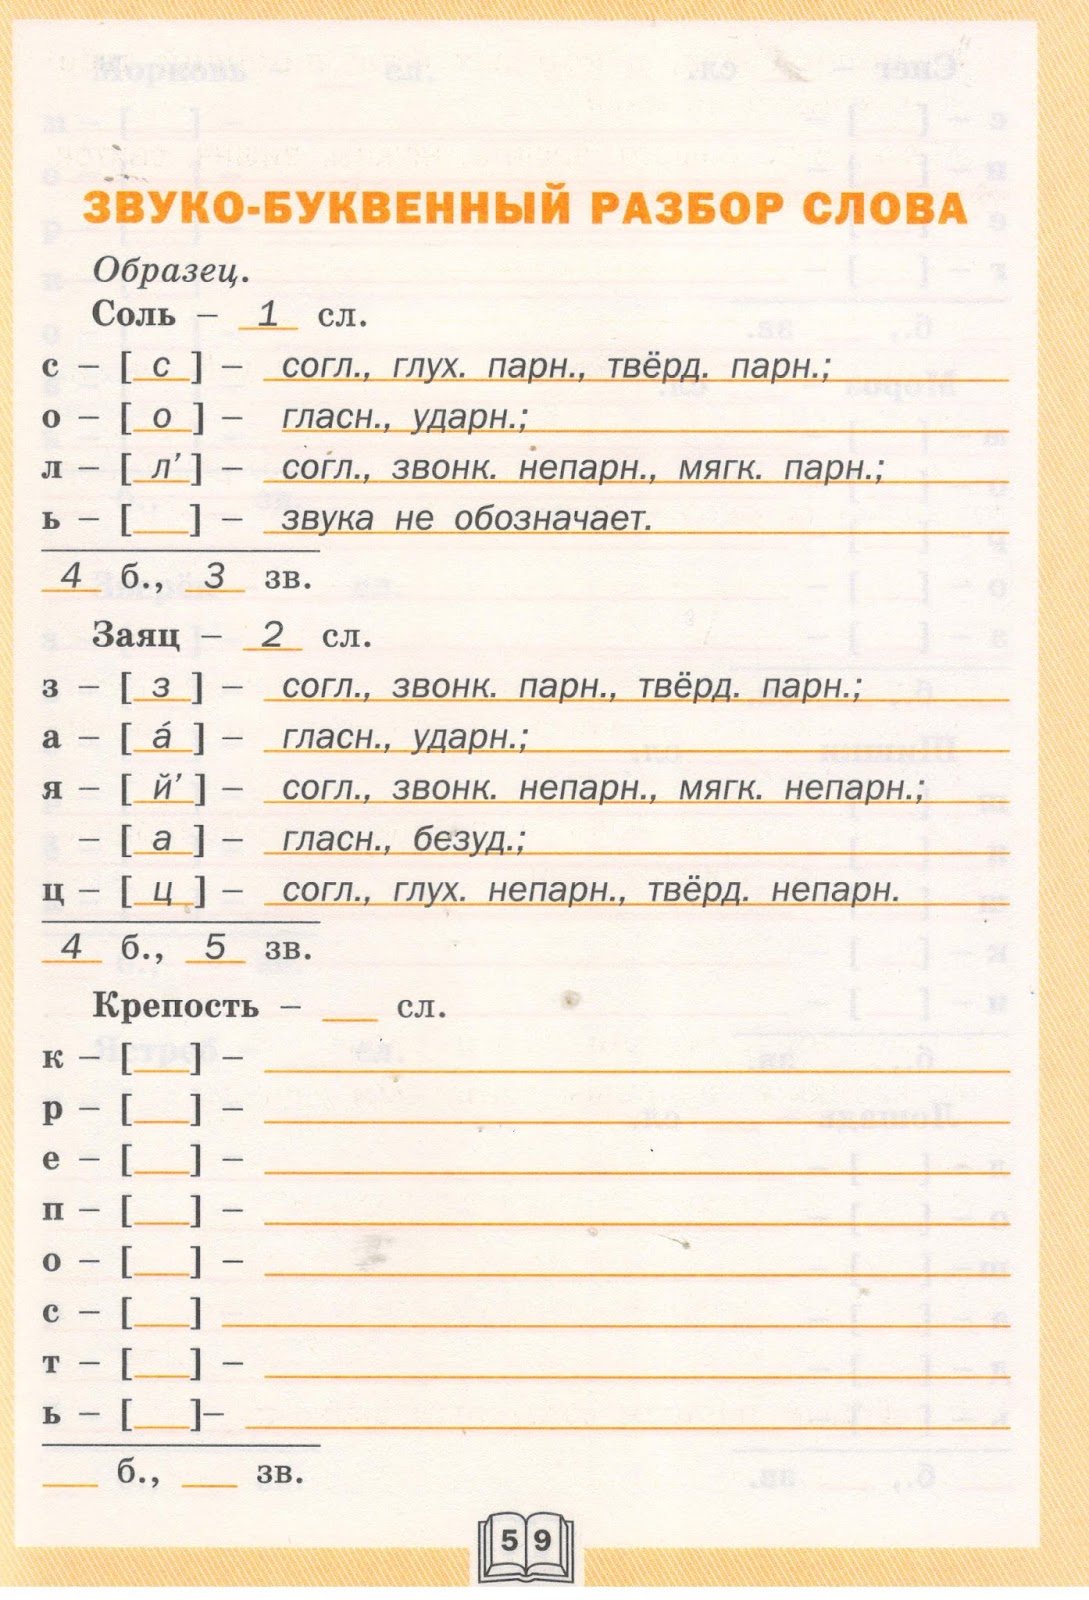 ЗВУКО-БУКВЕННЫЙ РАЗБОР СЛОВА
Образец.
Соль – 1 сл.
с – [ с ] – согл., глух. парн., твёрд. парн.;
о – [ о ] – гласн., ударн.;
л – [ л’ ] – согл., звонк. непарн., мягк. парн.;
ь – [ ] – звука не обозначает.
4 б., 3 зв.
Заяц – 2 сл.
з – [ з ] – согл., звонк. парн., твёрд. парн.;
а – [ а́ ] – гласн., ударн.;
я – [ й’ ] – согл., звонк. непарн., мягк. непарн.;
– [ а ] – гласн., безуд.;
ц – [ ц ] – согл., глух. непарн., твёрд. непарн.
4 б., 5 зв.
Крепость – ___ сл.
к – [___] –
р – [___] –
е – [___] –
п – [___] –
о – [___] –
с – [___]
т – [___] –
ь – [___]–
___ б., ___ зв.
59